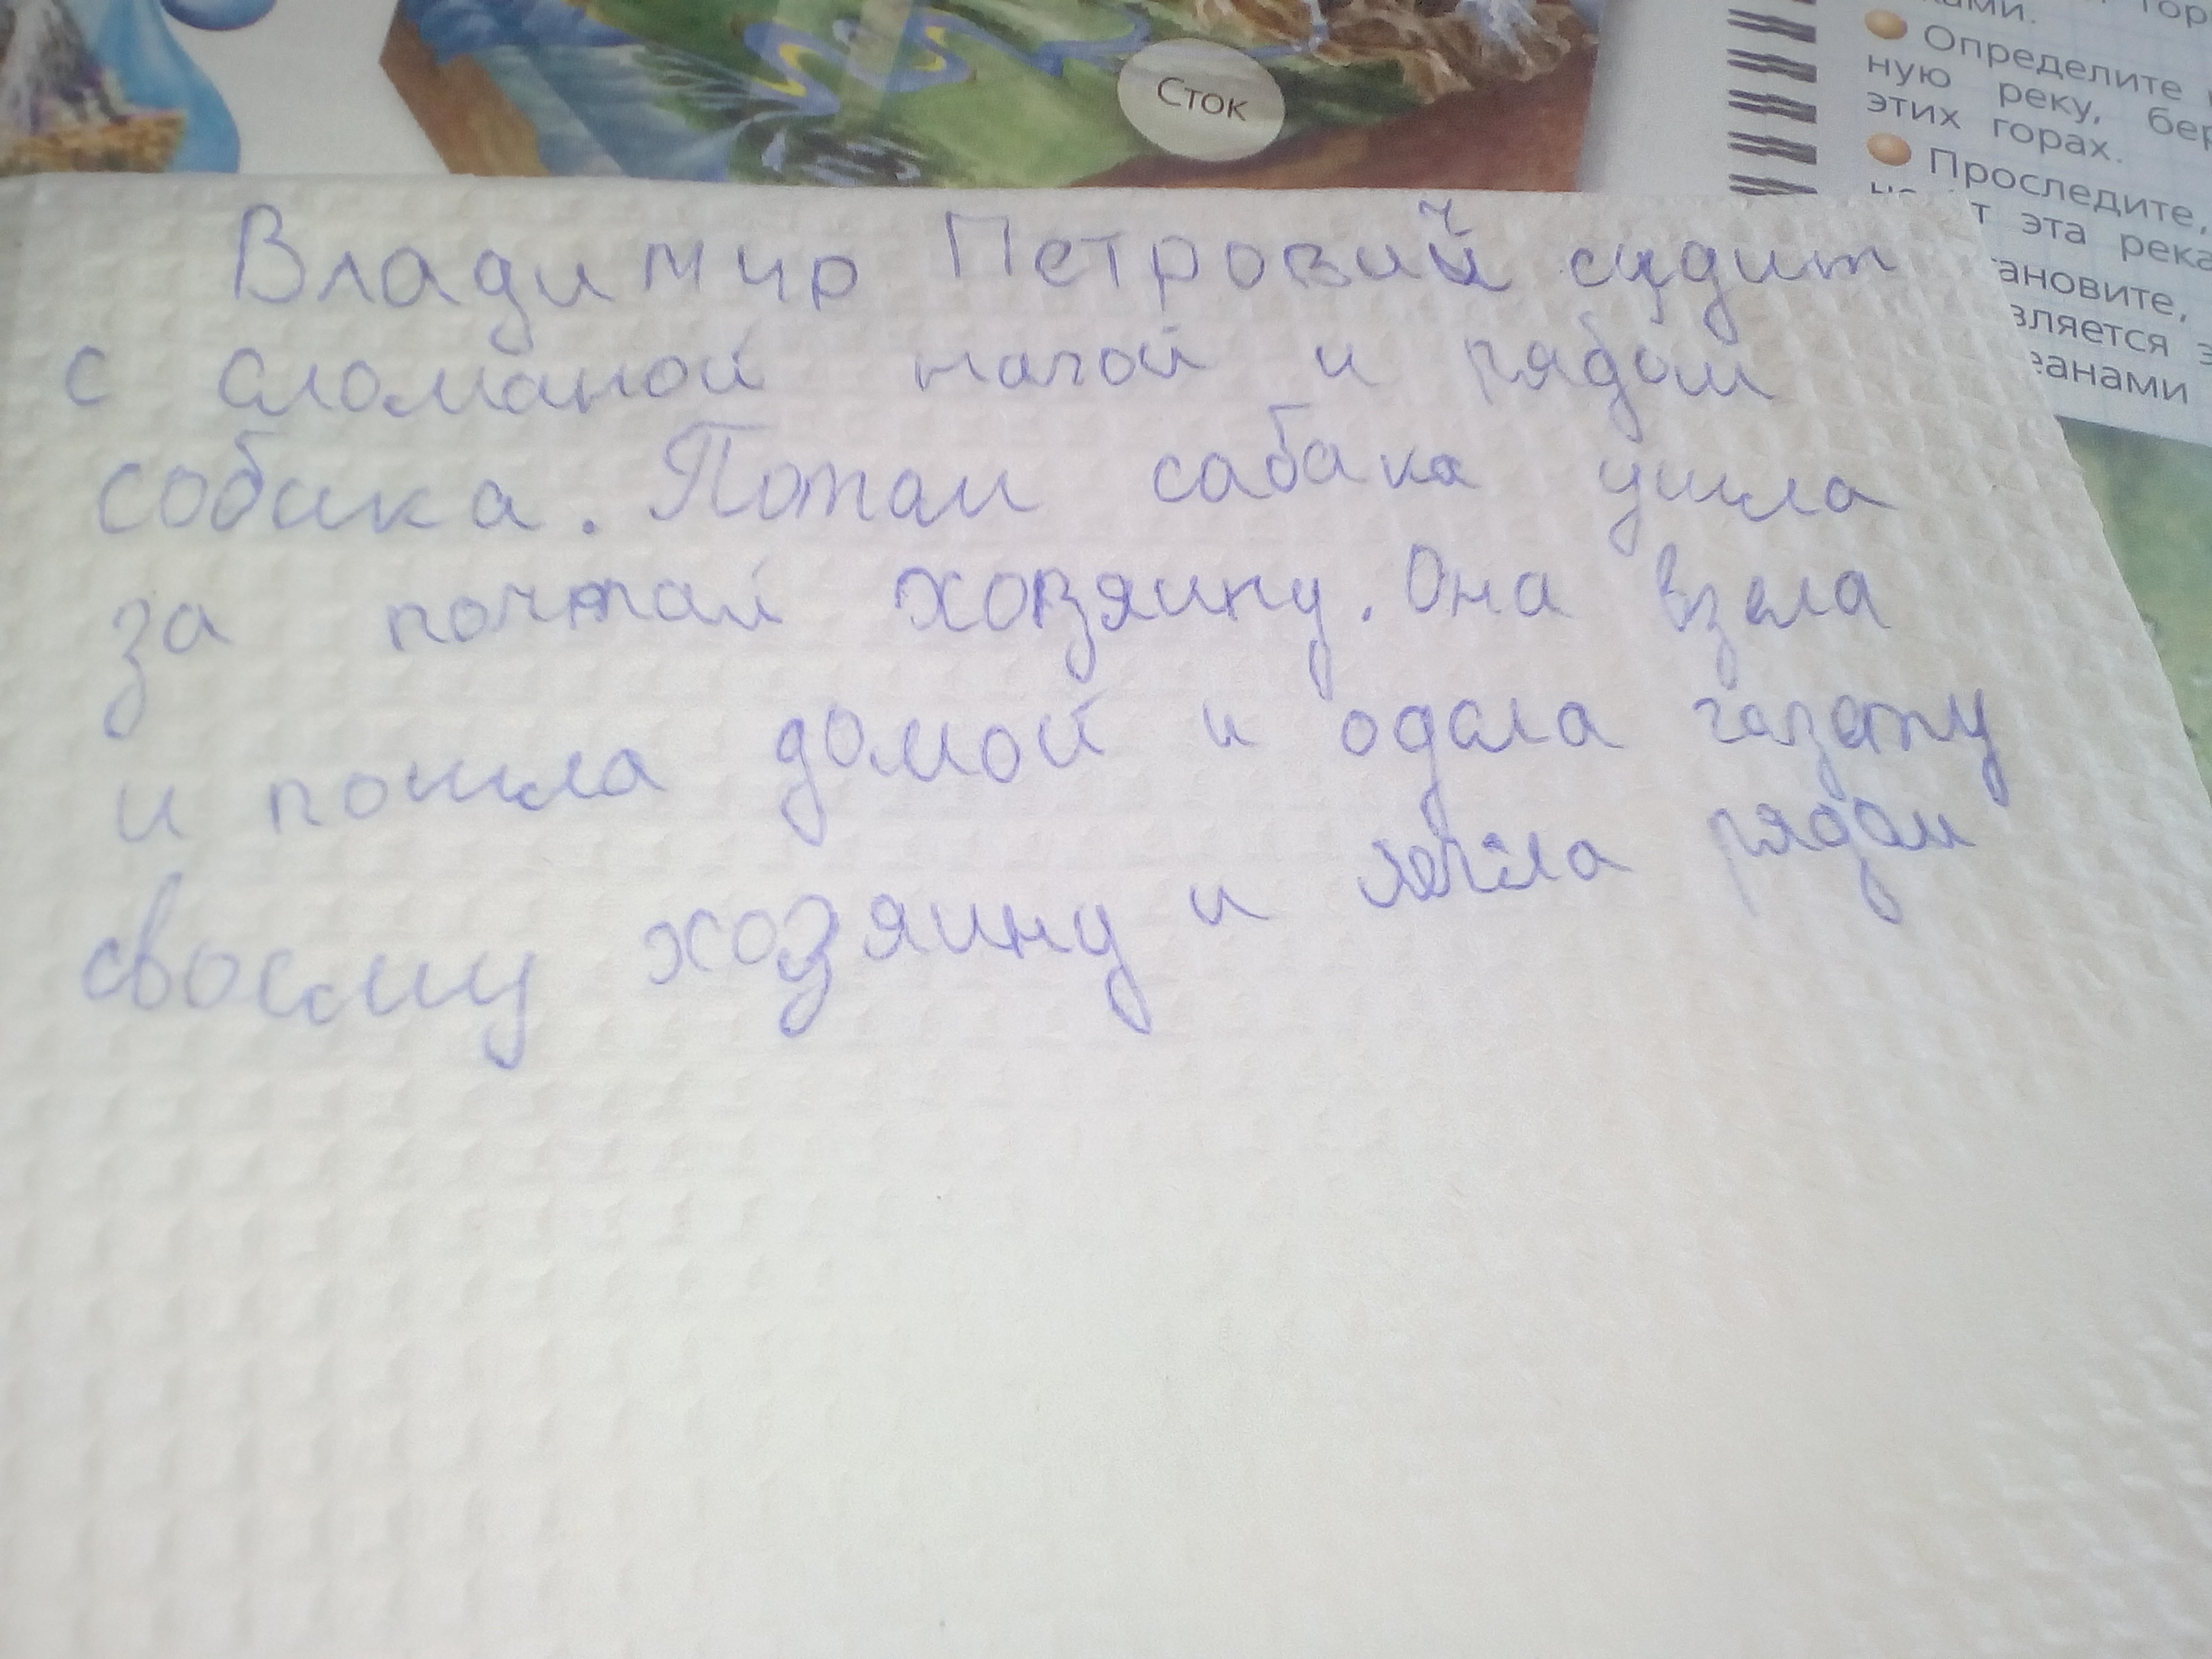 Сток
ками.
Определите
ную реку, бер
этих горах.
Проследите,
т эта река
ановите,
вляется э
еанами
Владимир Петровий сидит
с сломаной нагой и рядом
собака. Потом сабака ушла
за почтай хозяину. Она взела
и пошла домой и одала газету
своему хозяину и легла рядом